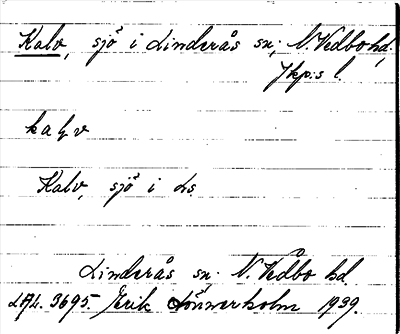 Kalv, sjö i Linderås sn, N. Vedbo hd,
Jkp:s l.
kaļv
Kalv, sjö i Ls.
Linderås sn. N. Vedbo hd.
LAL. 3695 Erik Lönnerholm 1939.